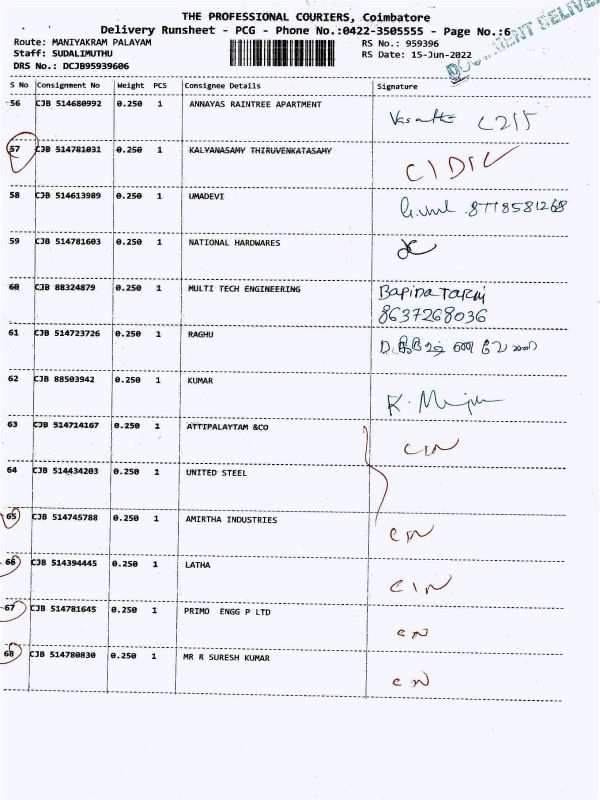 THE PROFESSIONAL COURIERS, Coimbatore
Delivery Runsheet - PCG - Phone No.:0422-3505555 - Page No.:6
Route: MANIYAKRAM PALAYAM RS No.: 959396
Staff: SUDALIMUTHU RS Date: 15-Jun-2022
DRS No.: DCJB95939606
DOCUMENT DELIVER
S No Consignment No Weight PCS Consignee Details Signature
56 CJB 514680992 0.250 1 ANNAYAS RAINTREE APARTMENT
C215
57 CJB 514781031 0.250 1 KALYANASAMY THIRUVENKATASAMY
58 CJB 514613989 0.250 1 UMADEVI
8778581268
59 CJB 514781603 0.250 1 NATIONAL HARDWARES
60 CJB 88324879 0.250 1 MULTI TECH ENGINEERING
8637268036
61 CJB 514723726 0.250 1 RAGHU
62 CJB 88503942 0.250 1 KUMAR
63 CJB 514714167 0.250 1 ATTIPALAYTAM &CO
64 CJB 514434203 0.250 1 UNITED STEEL
65 CJB 514745788 0.250 1 AMIRTHA INDUSTRIES
66 CJB 514394445 0.250 1 LATHA
67 CJB 514781645 0.250 1 PRIMO ENGG P LTD
68 CJB 514780830 0.250 1 MR R SURESH KUMAR